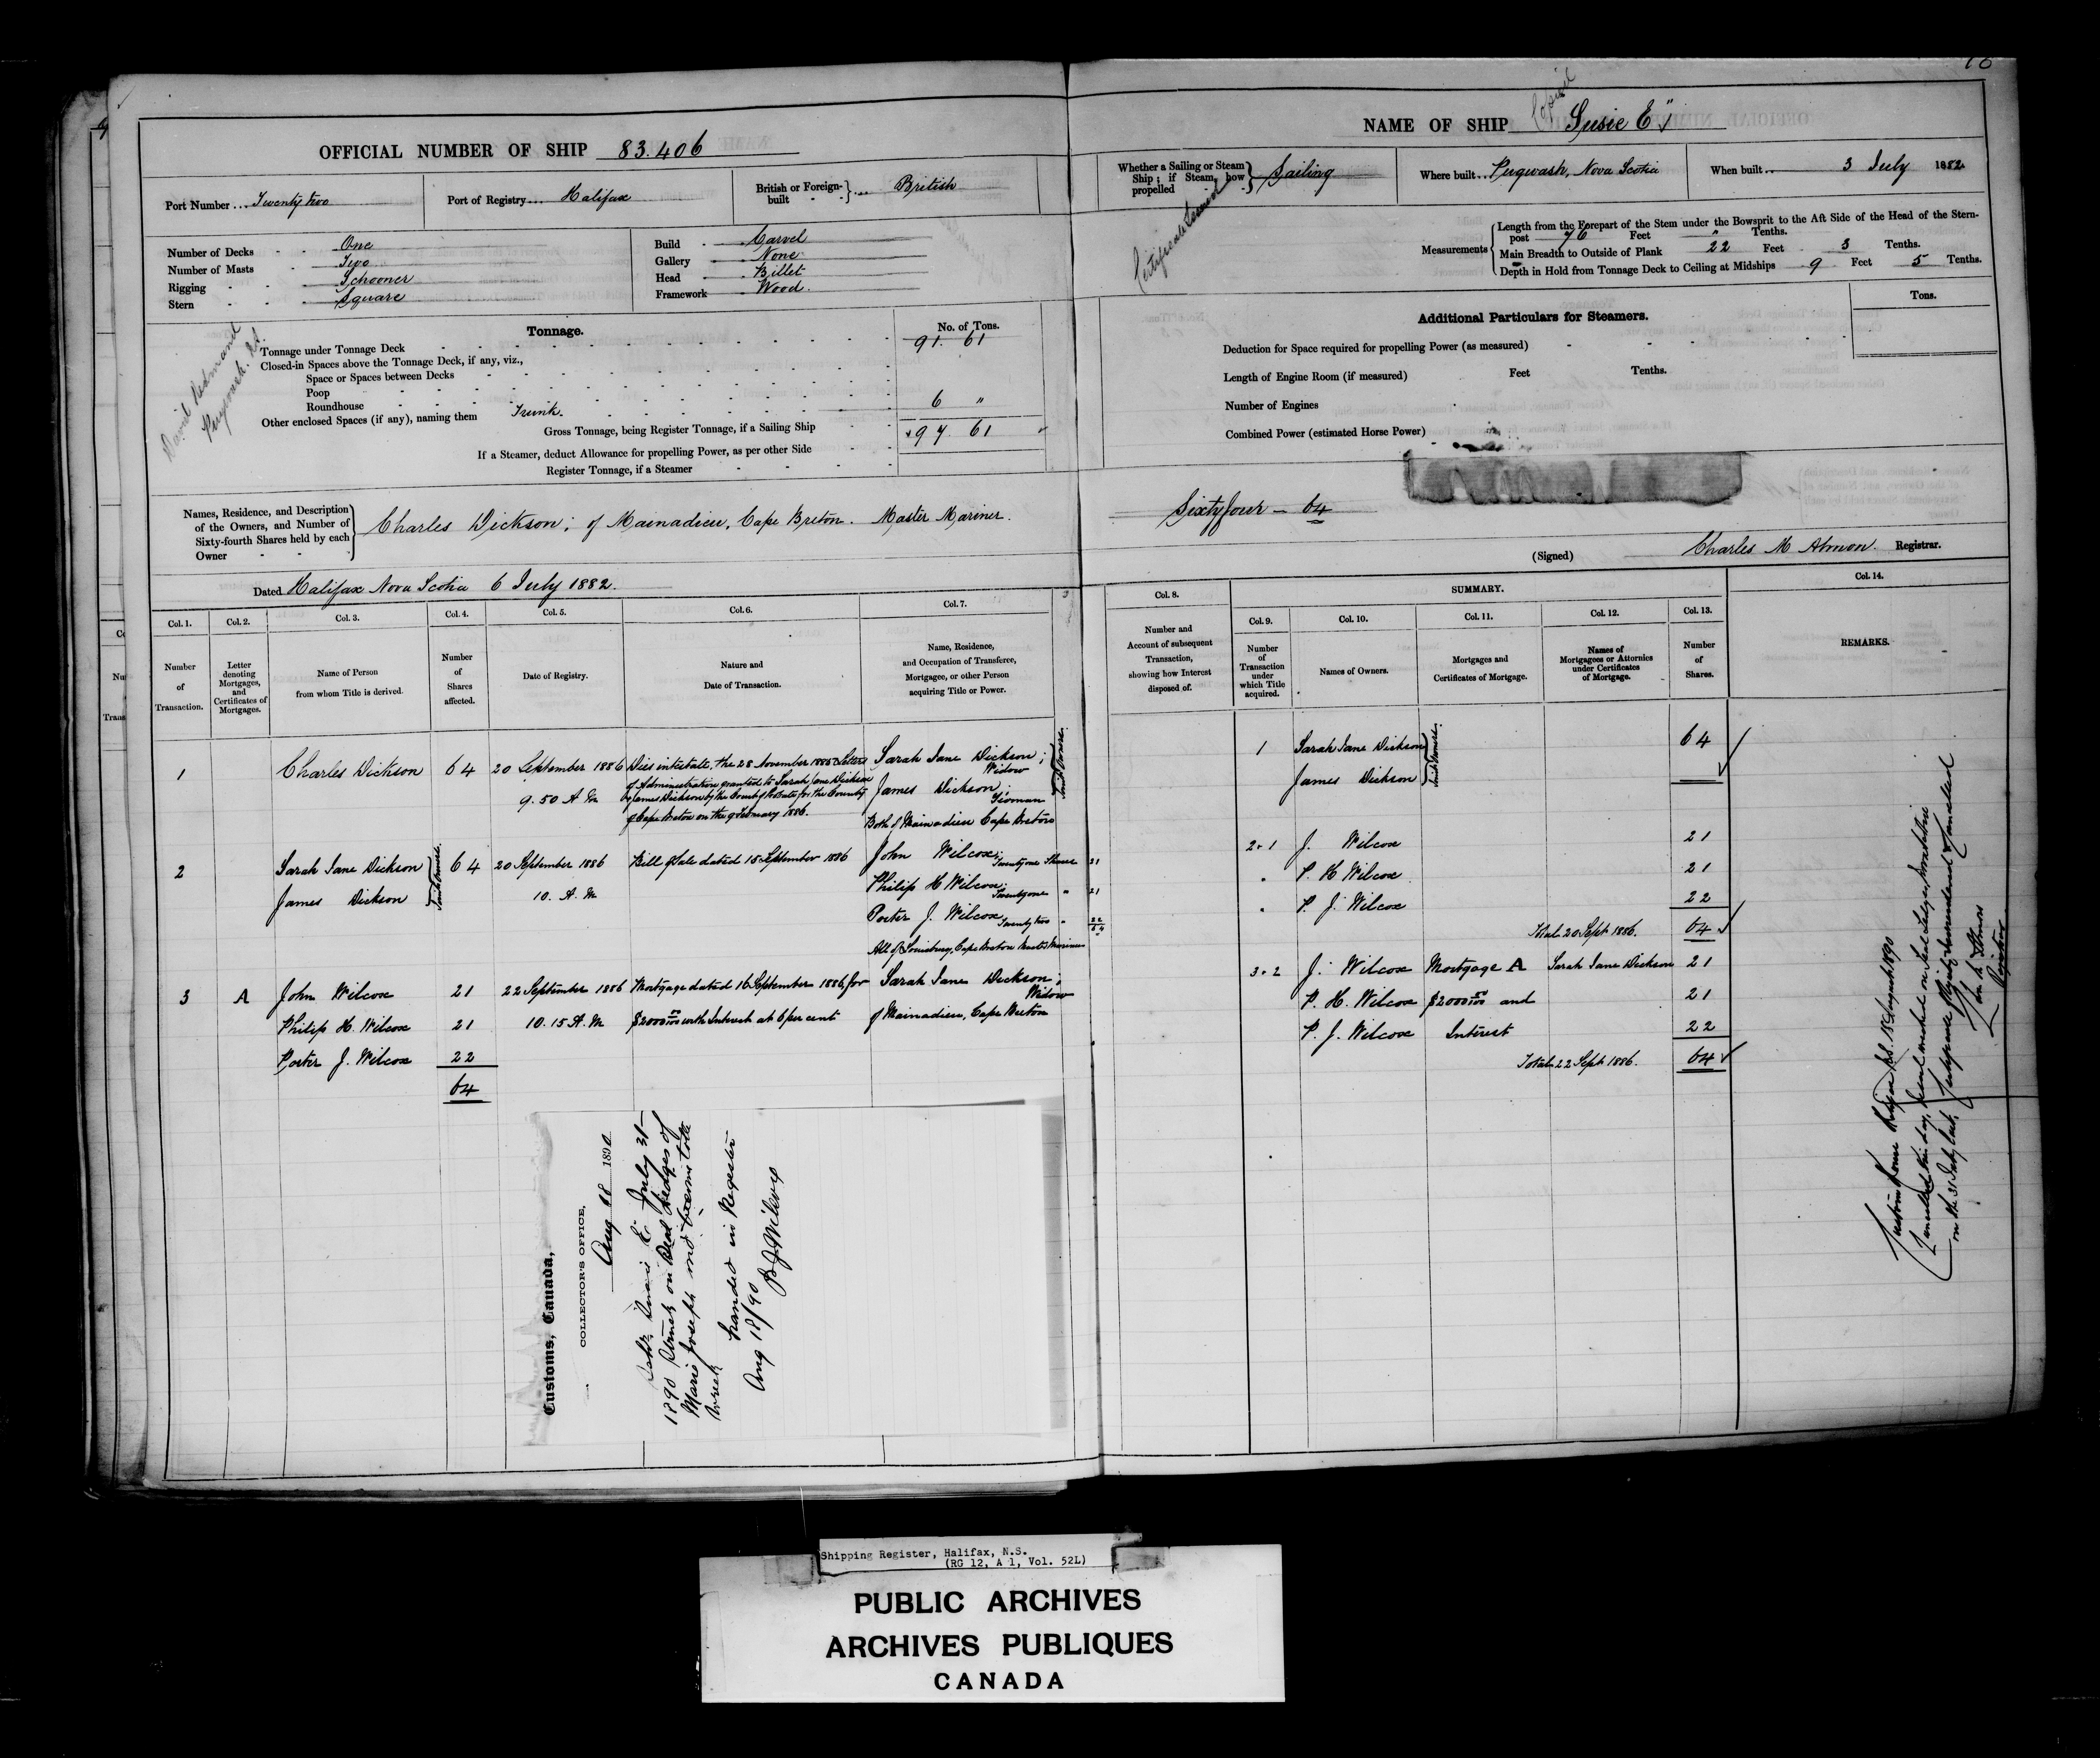 OFFICIAL NUMBER OF SHIP 83.406
Port Number ... Twenty two
Port of Registry ... Halifax
British or Foreign-built ... British
Number of Decks - - One
Number of Masts - - Two
Rigging - - - Schooner
Stern - - - Square
Build - Carvel
Gallery - None
Head - Billet
Framework - Wood.
David Redmand
Pugwash. N.S.
Tonnage.
No. of Tons.
Tonnage under Tonnage Deck 91. 61
Closed-in Spaces above the Tonnage Deck, if any, viz.,
Space or Spaces between Decks
Poop
Roundhouse
Other enclosed Spaces (if any), naming them Trunk. 6 "
Gross Tonnage, being Register Tonnage, if a Sailing Ship 97. 61
If a Steamer, deduct Allowance for propelling Power, as per other Side
Register Tonnage, if a Steamer
Names, Residence, and Description of the Owners, and Number of Sixty-fourth Shares held by each Owner
Charles Dickson; of Mainadieu, Cape Breton. Master Mariner.
Dated Halifax Nova Scotia 6 July 1882.
Col. 1. Col. 2. Col. 3. Col. 4. Col. 5. Col. 6. Col. 7.
Number of Transaction.
Letter denoting Mortgages, and Certificates of Mortgages.
Name of Person from whom Title is derived.
Number of Shares affected.
Date of Registry.
Nature and Date of Transaction.
Name, Residence, and Occupation of Transferee, Mortgagee, or other Person acquiring Title or Power.
1 Charles Dickson 64 20 September 1886 Dies intestate, the 28 November 1885 Letters Sarah Jane Dickson;
Widow
9.50 A M of Administration granted to Sarah Jane Dickson
& James Dickson by the Court of Probate for the County James Dickson;
Yeoman
of Cape Breton on the 9 February 1886. Both of Mainadieu Cape Breton
Joint Owners.
2 Sarah Jane Dickson 64 20 September 1886 Bill of Sale dated 15 September 1886 John Wilcox; Twenty one Shares 21
James Dickson 10. A. M Philip H Wilcox; Twenty one " 21
Joint Owners.
Porter J. Wilcox Twenty two " 22
64
All of Louisburg, Cape Breton Master Mariners
3 A John Wilcox 21 22 September 1886 Mortgage dated 16 September 1886, for Sarah Jane Dickson;
Widow
Philip H. Wilcox 21 10.15 A. M $2000 00/100 with Interest at 6 per cent of Mainadieu, Cape Breton
Porter J. Wilcox 22
64
Customs, Canada,
COLLECTOR'S OFFICE,
Aug 18 1890
July 31
1890 on Dead Ledges of
Marie Joseph and became total
wreck
handed in Register
Aug 18/90
P J Wilcox
NAME OF SHIP "Susie E"
Copied
Whether a Sailing or Steam Ship; if Steam, how propelled Sailing
Where built .. Pugwash, Nova Scotia
When built .. 3 July 1882
Measurements
Length from the Forepart of the Stem under the Bowsprit to the Aft Side of the Head of the Stern-
post 76 Feet " Tenths.
Main Breadth to Outside of Plank 22 Feet 3 Tenths.
Depth in Hold from Tonnage Deck to Ceiling at Midships 9 Feet 5 Tenths.
Additional Particulars for Steamers.
Tons.
Deduction for Space required for propelling Power (as measured)
Length of Engine Room (if measured) Feet Tenths.
Number of Engines
Combined Power (estimated Horse Power)
Sixty four — 64
(Signed) Charles M Almon. Registrar.
Col. 8. SUMMARY. Col. 14.
Col. 9. Col. 10. Col. 11. Col. 12. Col. 13.
Number and Account of subsequent Transaction, showing how Interest disposed of.
Number of Transaction under which Title acquired.
Names of Owners.
Mortgages and Certificates of Mortgage.
Names of Mortgagees or Attornies under Certificates of Mortgage.
Number of Shares.
REMARKS.
1 Sarah Jane Dickson 64
James Dickson
Joint Owners.
2.1 J. Wilcox 21
" P. H Wilcox 21
" P. J. Wilcox 22
Total 20 Sept 1886. 64
3.2 J. Wilcox Mortgage A Sarah Jane Dickson 21
P. H. Wilcox $2000 00/100 and 21
P. J. Wilcox Interest 22
Total 22 Sept 1886. 64
Custom House Halifax N.S. 18 August 1890
Cancelled this day, Vessel wrecked on Dead Ledges
on the 31 July last, Certificate of Registry surrendered & Cancelled
Registrar
Shipping Register, Halifax, N.S.
(RG 12, A 1, Vol. 52L)
PUBLIC ARCHIVES
ARCHIVES PUBLIQUES
CANADA